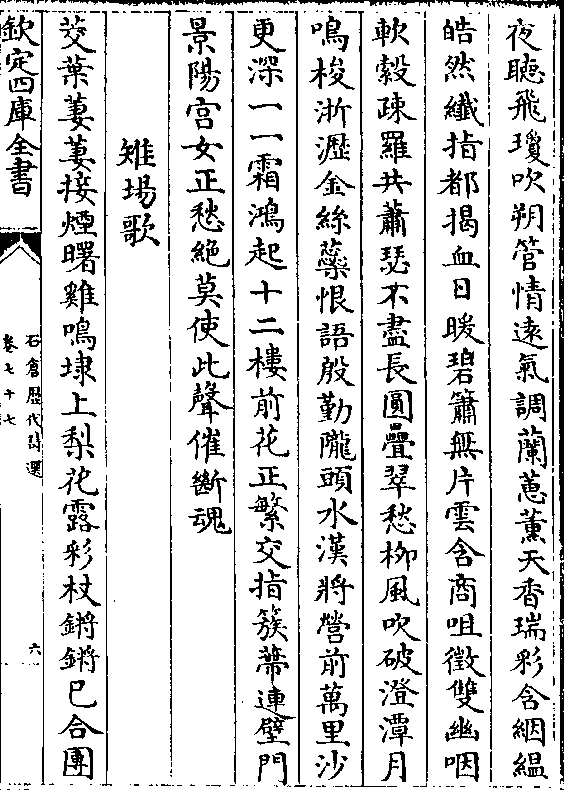 夜聽飛瓊吹朔管情遠氣調蘭蕙薰天香瑞彩含絪縕
皓然纎指都揭血日暖碧簫無片雲含商咀徵雙幽咽
軟縠疎羅共蕭瑟不盡長圓疊翠愁柳風吹破澄潭月
鳴梭淅瀝金絲蘂恨語殷勤隴頭水漢將營前萬里沙
更深一一霜鴻起十二樓前花正繁交指簇蔕連壁門
景陽宮女正愁絶莫使此聲催斷魂
雉場歌
茭葉萋萋接煙曙雞鳴埭上梨花露彩杖鏘鏘已合團
欽定四庫全書
石倉歷代詩選
卷七十七
六